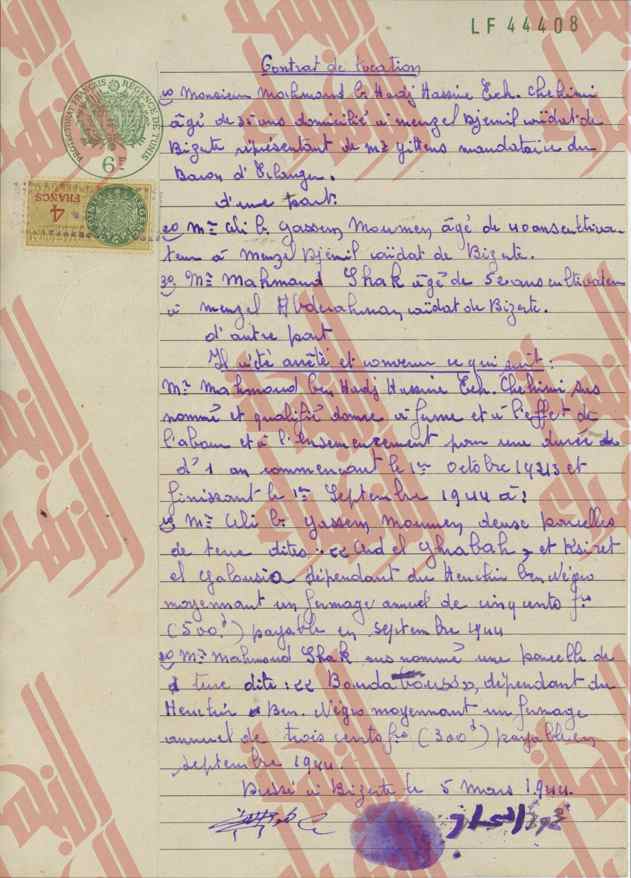 LF 44408
Contrat de location
PROTECTORAT FRANÇAIS RÉGENCE DE TUNIS
6F
4 FRANCS
1o Monsieur Mahmoud b. Hadj Hassine Ech. Chehimi
âgé de 35 ans domicilié à menzel Djemil caïdat de
Bizerte représentant de mr Gittens mandataire du
Baron d'Erlanger.
d'une part.
2o Mr Ali b. Gassem Moumen, âgé de 40 ans cultiva-
teur à Menzel Djemil caïdat de Bizerte.
3o Mr Mahmoud Shak âgé de ans cultivateur
à menzel Abderahman, caïdat de Bizerte.
d'autre part
Il a été arrêté et convenu ce qui suit :
Mr Mahmoud ben Hadj Hassine Ech. Chehimi sus
nommé et qualifié donne à ferme et à l'effet de
l'abour et à l'ensemencement pour une durée de
d'1 an commençant le 1er Octobre 1943 et
finissant le 1er Septembre 1944 à :
1o Mr Ali b. Gassem, Moumen, deuse parcelles
de terre dites : << Aid el Ghabah >> et Ksiret
el Galousia dépendant du Henchir ben Négro
moyennant un fermage annuel de cinq cents frs
(500f) payable en septembre 1944
2o Mr Mahmoud Shak sus nommé une parcelle de
terre dite : << Bouda >>, dépendant du
Henchir Ben. Négro moyennant un fermage
annuel de trois cents frs (300f) payable en
septembre 1944.
Dressé à Bizerte le 5 Mars 1944.